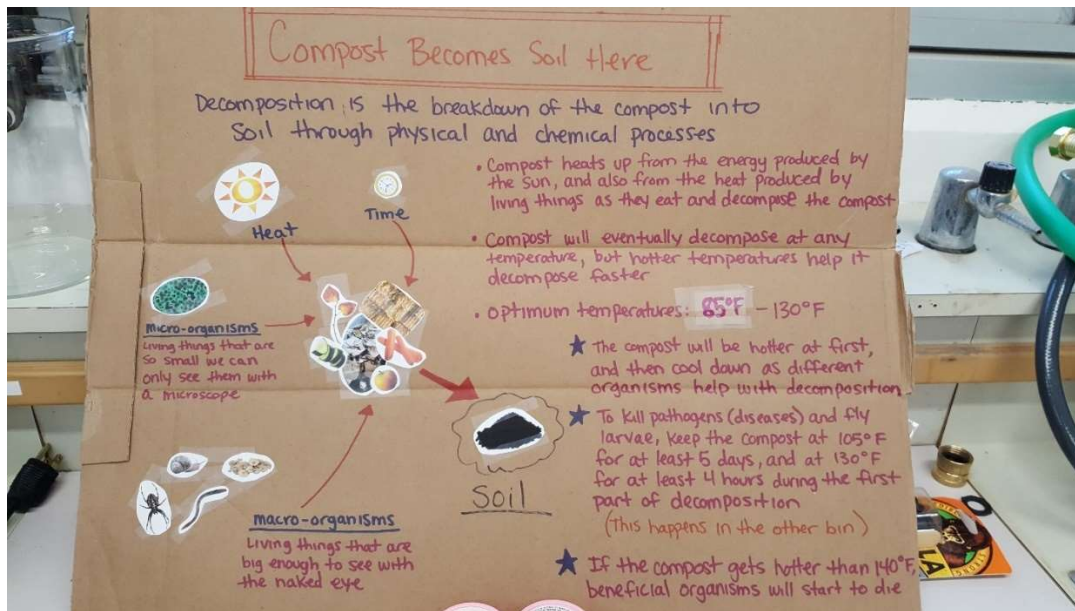 Compost Becomes Soil Here
Decomposition is the breakdown of the compost into
soil through physical and chemical processes
Heat
Time
micro-organisms
Living things that are
so small we can
only see them with
a microscope
macro-organisms
Living things that are
big enough to see with
the naked eye
Soil
• Compost heats up from the energy produced by
the sun, and also from the heat produced by
living things as they eat and decompose the compost
• Compost will eventually decompose at any
temperature, but hotter temperatures help it
decompose faster
• optimum temperatures: 85°F - 130°F
★ The compost will be hotter at first,
and then cool down as different
organisms help with decomposition
★ To kill pathogens (diseases) and fly
larvae, keep the compost at 105°F
for at least 5 days, and at 130°F
for at least 4 hours during the first
part of decomposition
(This happens in the other bin)
★ If the compost gets hotter than 140°F,
beneficial organisms will start to die